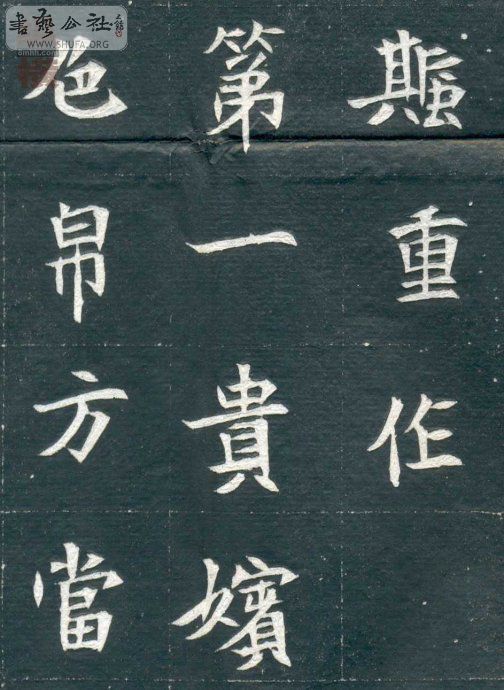 書藝公社
WWW.SHUFA.ORG
重作
第一貴嬪
色帛方當